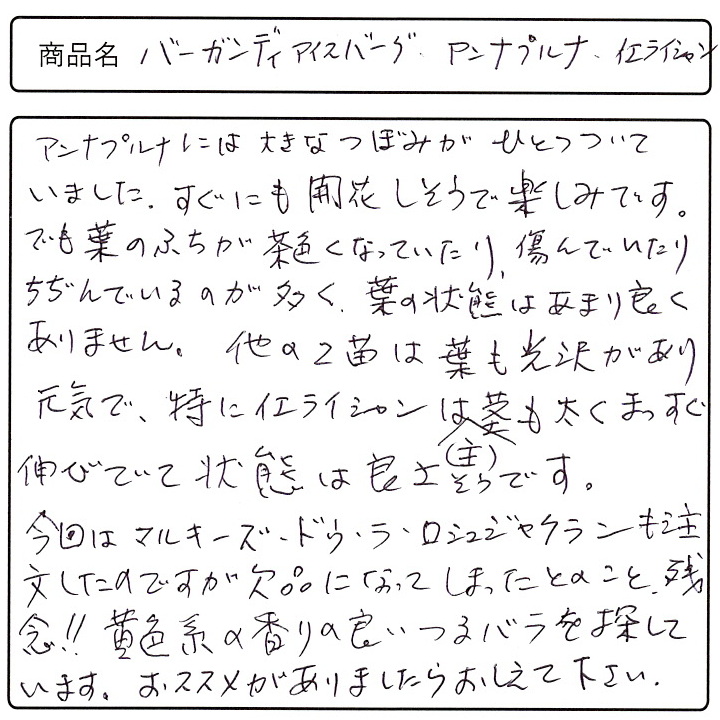 商品名 バーガンディアイスバーグ、アンナプルナ、イエライシャン
アンナプルナには大きなつぼみがひとつついて
いました。すぐにも開花しそうで楽しみです。
でも葉のふちが茶色くなっていたり、傷んでいたり
ちぢんでいるのが多く、葉の状態はあまり良く
ありません。他の2苗は葉も光沢があり
元気で、特にイエライシャンは茎も太くまっすぐ
(主)
伸びていて状態は良さそうです。
今回はマルキーズ・ドゥ・ラ・ロシュジャクランも注
文したのですが欠品になってしまったとのこと、残
念!!黄色系の香りの良いつるバラを探して
います。おススメがありましたらおしえて下さい。